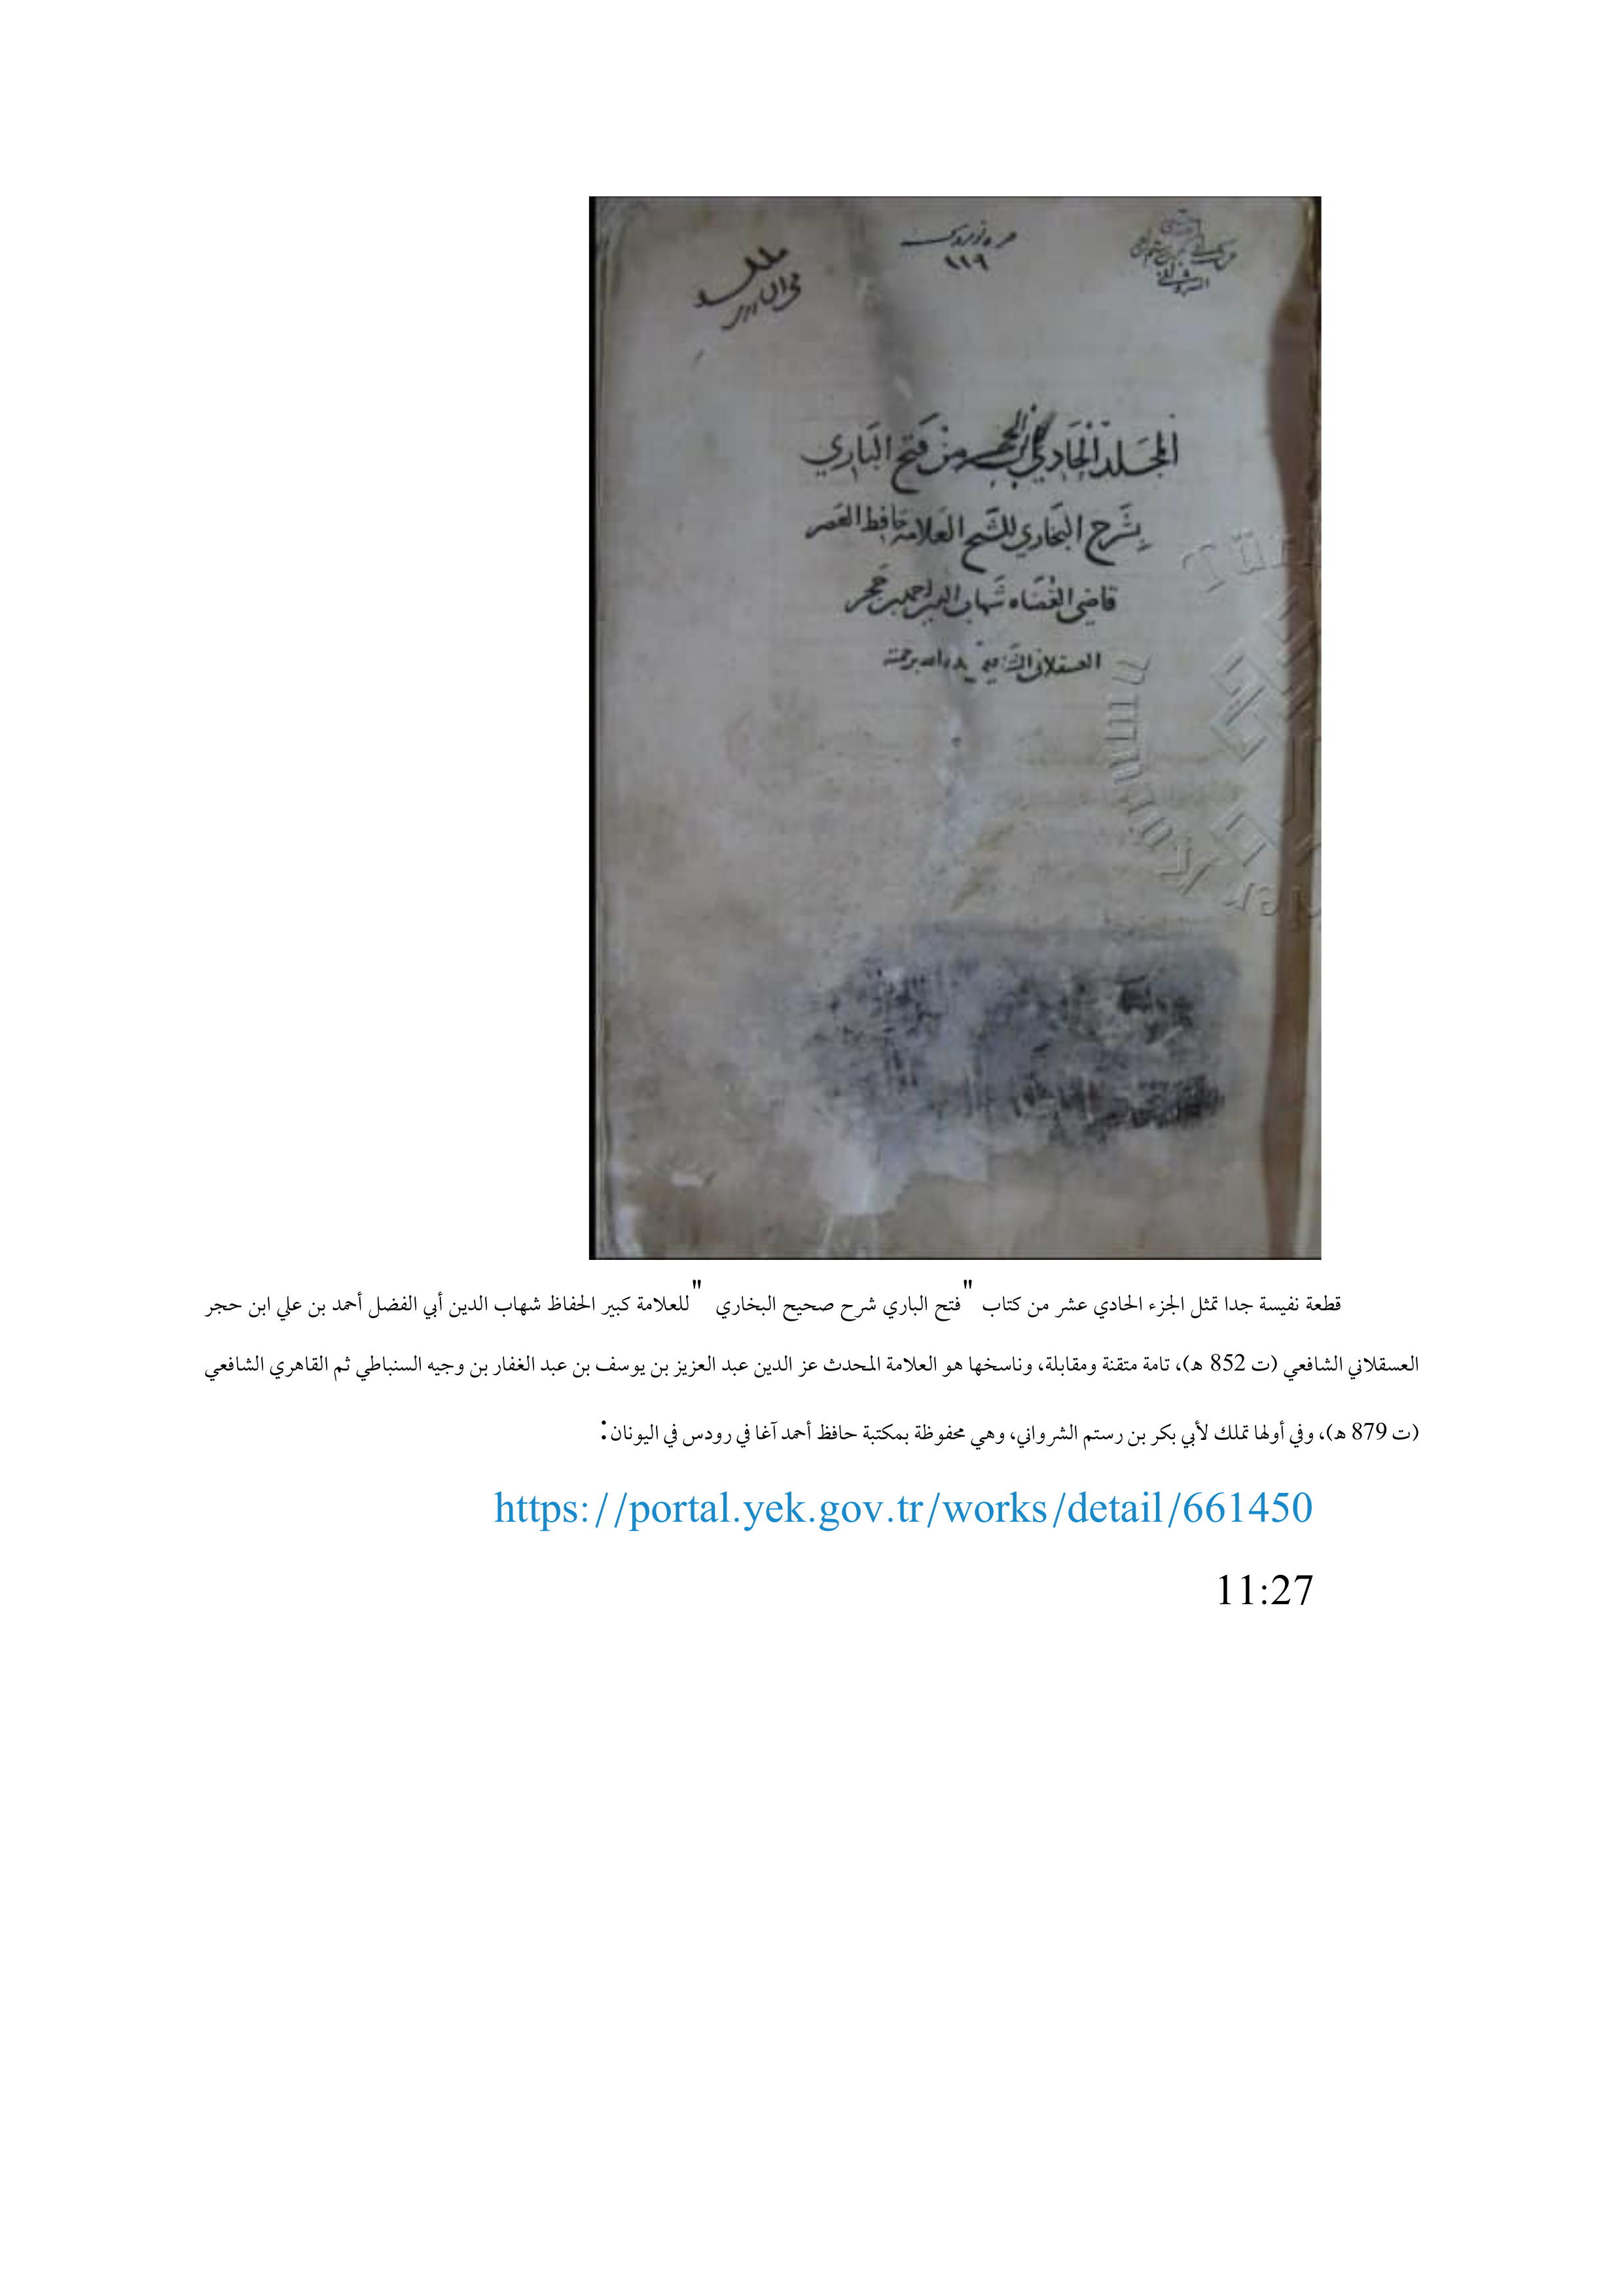 نمرو
١١٩
المجلد الحادي من فتح الباري
بشرح البخاري للشيخ العلامة حافظ العصر
قاضي القضاه شهاب الدين احمد بن حجر
العسقلاني الشافعي برحمته
قطعة نفيسة جدا تمثل الجزء الحادي عشر من كتاب "فتح الباري شرح صحيح البخاري" للعلامة كبير الحفاظ شهاب الدين أبي الفضل أحمد بن علي ابن حجر
العسقلاني الشافعي (ت 852 هـ)، تامة متقنة ومقابلة، وناسخها هو العلامة المحدث عز الدين عبد العزيز بن يوسف بن عبد الغفار بن وجيه السنباطي ثم القاهري الشافعي
(ت 879 هـ)، وفي أولها تملك لأبي بكر بن رستم الشرواني، وهي محفوظة بمكتبة حافظ أحمد آغا في رودس في اليونان:
https://portal.yek.gov.tr/works/detail/661450
11:27